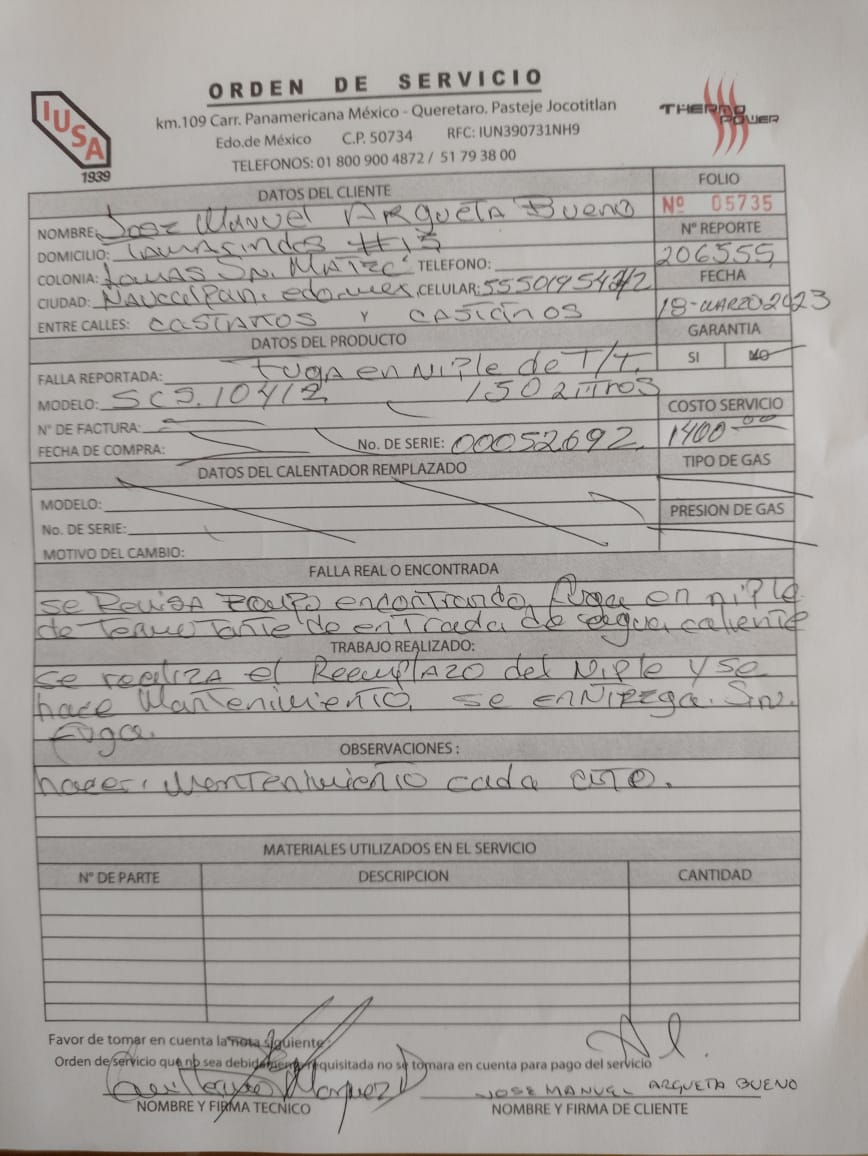 ORDEN DE SERVICIO
IUSA
1939
km.109 Carr. Panamericana México - Queretaro. Pasteje Jocotitlan
Edo.de México C.P. 50734 RFC: IUN390731NH9
TELEFONOS: 01 800 900 4872 / 51 79 38 00
THERMO POWER
DATOS DEL CLIENTE FOLIO
NOMBRE: Jose Manuel Argueta Bueno Nº 05735
DOMICILIO: #13 N° REPORTE
COLONIA: Lomas Sn. Mateo TELEFONO: 206555
CIUDAD: Naucalpan. edo.mex. CELULAR: FECHA
ENTRE CALLES: castaños Y 18-MARZO 2023
DATOS DEL PRODUCTO GARANTIA
FALLA REPORTADA: fuga en Niple de T/T. SI NO
MODELO: SCS.10412 150 Litros
N° DE FACTURA: COSTO SERVICIO
FECHA DE COMPRA: No. DE SERIE: 00052692. 1400.00
DATOS DEL CALENTADOR REMPLAZADO TIPO DE GAS
MODELO:
No. DE SERIE: PRESION DE GAS
MOTIVO DEL CAMBIO:
FALLA REAL O ENCONTRADA
se Revisa encontrando fuga en niple
de de entrada de agua caliente
TRABAJO REALIZADO:
se realiza el Reemplazo del Niple y se
hace Mantenimiento, se Sin.
fuga.
OBSERVACIONES :
hacer. Mantenimiento cada
MATERIALES UTILIZADOS EN EL SERVICIO
N° DE PARTE DESCRIPCION CANTIDAD
Favor de tomar en cuenta la nota siguiente :
Orden de servicio que no sea debidamente requisitada no se tomara en cuenta para pago del servicio
Marquez JOSE MANUEL ARGUETA BUENO
NOMBRE Y FIRMA TECNICO NOMBRE Y FIRMA DE CLIENTE